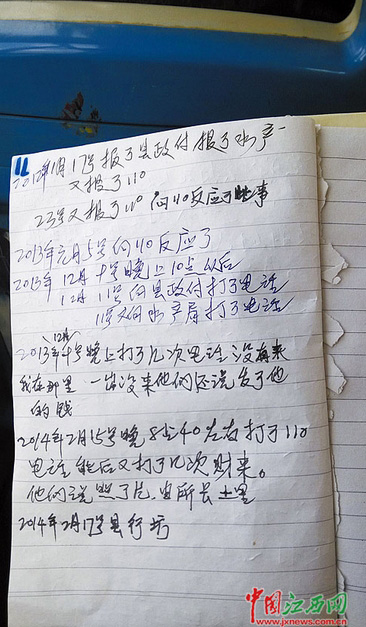 2012年1月17号报了县政付报了水产
又报了110
23号又报了110向110反应了些事
2013年元月5号向110反应了
2013年12月十号晚上10点以后
12月11号向县政付打了电话
11号又向水产局打了电话
12月
2013年十号晚上打了几次电话没有来
我在那里一岀没来他们还说发了他
的钱
2014年2月15号晚8点40左右打了110
电话然后又打了几次财来。
他们说照了片
2014年2月17号县行
中国江西网
www.jxnews.com.cn